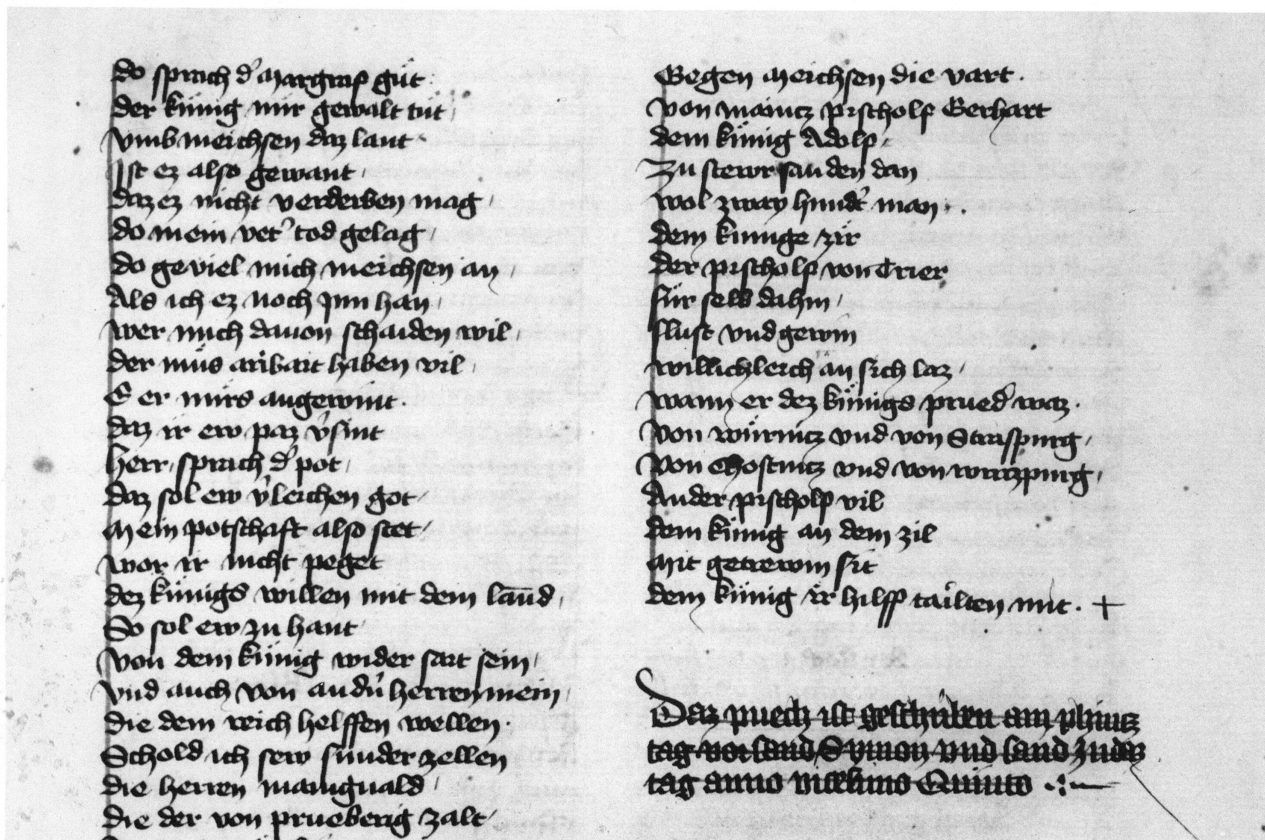 do sprach d' Margraf gůt
der künig mir gewalt tůt
vmb meichsen daz lant
Ist ez also gewant
daz ez nicht verderben mag
do mein vet' tod gelag
do geviel mich meichsen an
Als ich ez noch Inn han
wer mich dauon schaiden wil
der můs aribait haben vil
E er mirs angewint
daz ir ew paz v'sint
herr sprach d' pot
daz sol ew v'leichen got
Mein potschaft also stet
wor ir nicht peget
dez künigs willen mit dem land
So sol ew zu hant
von dem künig wider sait sein
vnd auch von andn' herren mein
die dem reich helffen wellen
Schold ich sew sunder zellen
die herren maniguald
die der von prueberig zalt
Gegen Meichsen die vart
von maincz pischolf Gerhart
dem künig Adolf
Zu stewr san den dan
wol zway hund't man
dem künige zir
der pischolf von Trier
für selb dahin
flust vnd gewin
willichleich an sich laz
wann er dez künigs prued' waz
von würmcz vnd von Strasspurg
von Chostnicz vnd von wirczpurg
Ander pischolf vil
dem künig an dem zil
Mit getrewm sit
dem künig ir hilff tailten mit
Daz puech ist geschriben am phincz
tag vor sand Symon vnd sand Judas
tag anno vicesimo Quinto